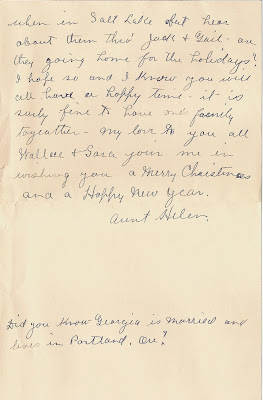 when in Salt Lake but hear
about them thro' Jack & Gail - are
they going home for the holidays?
I hope so and I know you will
all have a happy time - it is
surly fine to have one' family
togeather - my love to you all
Wallace & Sara join me in
wishing you a Merry Christmas
and a Happy New Year.
Aunt Helen.
Did you know Georgia is married and
lives in Portland, Ore?